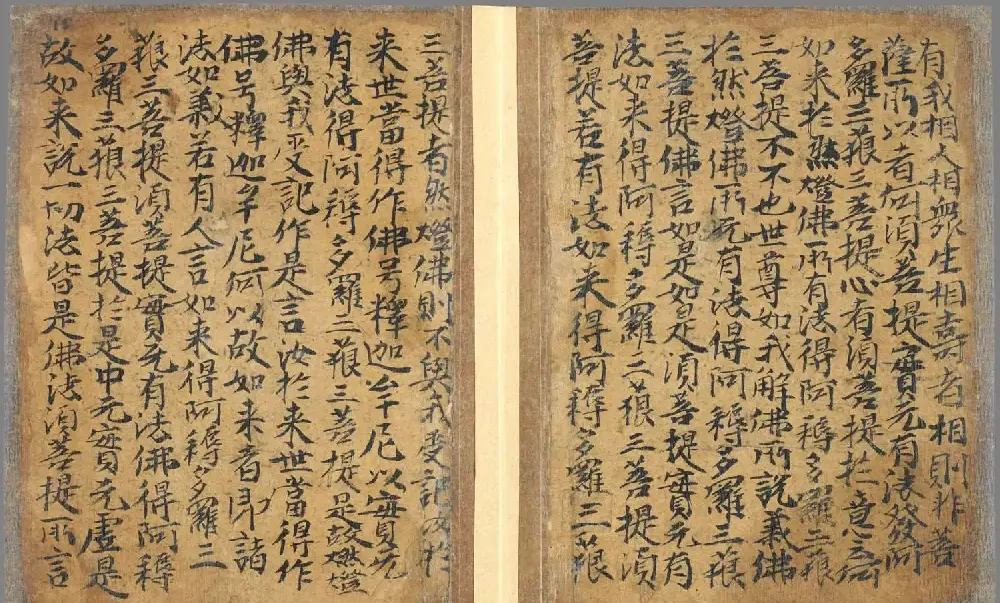 有我相人相衆生相壽者相則非菩
薩所以者何須菩提實无有法發阿
多羅三藐三菩提心有須菩提於意云何
如来於然燈佛所有法得阿耨多羅三藐
三菩提不不也世尊如我解佛所說義佛
於然燈佛所无有法得阿耨多羅三藐
三菩提佛言如是如是須菩提實无有
法如来得阿耨多羅三藐三菩提須
菩提若有法如来得阿耨多羅三藐
三菩提者然燈佛則不與我受記汝於
来世當得作佛号釋迦牟尼以實无
有法得阿耨多羅三藐三菩提是故燃燈
佛與我受記作是言汝於来世當得作
佛号釋迦牟尼何以故如来者即諸
法如義若有人言如来得阿耨多羅三
藐三菩提須菩提實无有法佛得阿耨
多羅三藐三菩提於是中无實无虛是
故如来說一切法皆是佛法須菩提所言